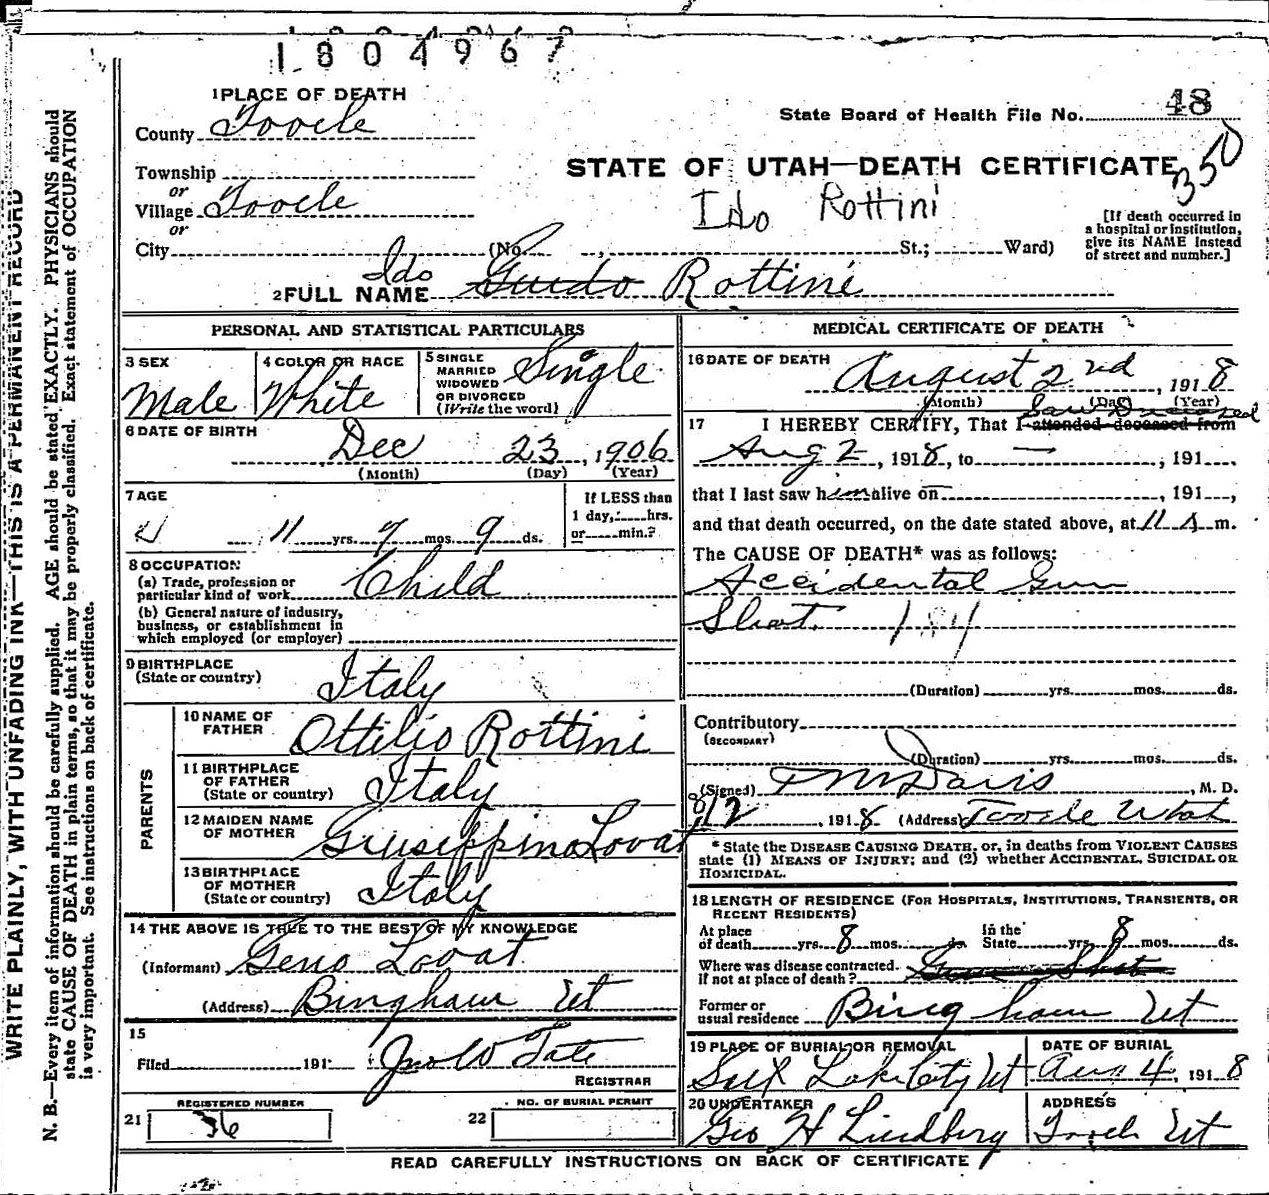 1804967
1 PLACE OF DEATH
County Tooele
State Board of Health File No. 48
350
Township
or
Village Tooele
or
STATE OF UTAH—DEATH CERTIFICATE
Ido Rottini
[If death occurred in
a hospital or institution,
give its NAME instead
of street and number.]
City (No. , St.; Ward)
2 FULL NAME Ido Guido Rottini
PERSONAL AND STATISTICAL PARTICULARS
3 SEX
Male
4 COLOR OR RACE
White
5 SINGLE
MARRIED
WIDOWED
OR DIVORCED
(Write the word)
Single
6 DATE OF BIRTH
Dec 23, 1906
(Month) (Day) (Year)
7 AGE
11 yrs. 7 mos. 9 ds.
If LESS than
1 day, hrs.
or min.?
8 OCCUPATION
(a) Trade, profession or
particular kind of work Child
(b) General nature of industry,
business, or establishment in
which employed (or employer)
9 BIRTHPLACE
(State or country) Italy
PARENTS
10 NAME OF
FATHER Ottilio Rottini
11 BIRTHPLACE
OF FATHER
(State or country) Italy
12 MAIDEN NAME
OF MOTHER Giuseppina Lovat
13 BIRTHPLACE
OF MOTHER
(State or country) Italy
14 THE ABOVE IS TRUE TO THE BEST OF MY KNOWLEDGE
(Informant) Geno Lovat
(Address) Bingham Ut
15
Filed 191 Jno W Tate
REGISTRAR
REGISTERED NUMBER
21 36
NO. OF BURIAL PERMIT
22
MEDICAL CERTIFICATE OF DEATH
16 DATE OF DEATH
August 2nd, 1918
(Month) (Day) (Year)
Saw Deceased
17 I HEREBY CERTIFY, That I attended deceased from
Aug 2, 1918, to — , 191 ,
that I last saw him alive on — , 191 ,
and that death occurred, on the date stated above, at 11 A m.
The CAUSE OF DEATH* was as follows:
Accidental Gun
Shot.
(Duration) yrs. mos. ds.
Contributory
(SECONDARY)
(Duration) yrs. mos. ds.
(Signed) T M Davis, M. D.
8/2, 1918 (Address) Tooele Utah
* State the DISEASE CAUSING DEATH, or, in deaths from VIOLENT CAUSES
state (1) MEANS OF INJURY; and (2) whether ACCIDENTAL, SUICIDAL OR
HOMICIDAL.
18 LENGTH OF RESIDENCE (FOR HOSPITALS, INSTITUTIONS, TRANSIENTS, OR
RECENT RESIDENTS)
At place
of death yrs. 8 mos. ds.
In the
State yrs. 8 mos. ds.
Where was disease contracted.
if not at place of death? Gun Shot
Former or
usual residence Bingham Ut
19 PLACE OF BURIAL OR REMOVAL
Salt Lake City Ut
DATE OF BURIAL
Aug 4, 1918
20 UNDERTAKER
Geo H Lindberg
ADDRESS
Tooele Ut
READ CAREFULLY INSTRUCTIONS ON BACK OF CERTIFICATE
WRITE PLAINLY, WITH UNFADING INK—THIS IS A PERMANENT RECORD
N. B.—Every item of information should be carefully supplied. AGE should be stated EXACTLY. PHYSICIANS should
state CAUSE OF DEATH in plain terms, so that it may be properly classified. Exact statement of OCCUPATION
is very important. See instructions on back of certificate.